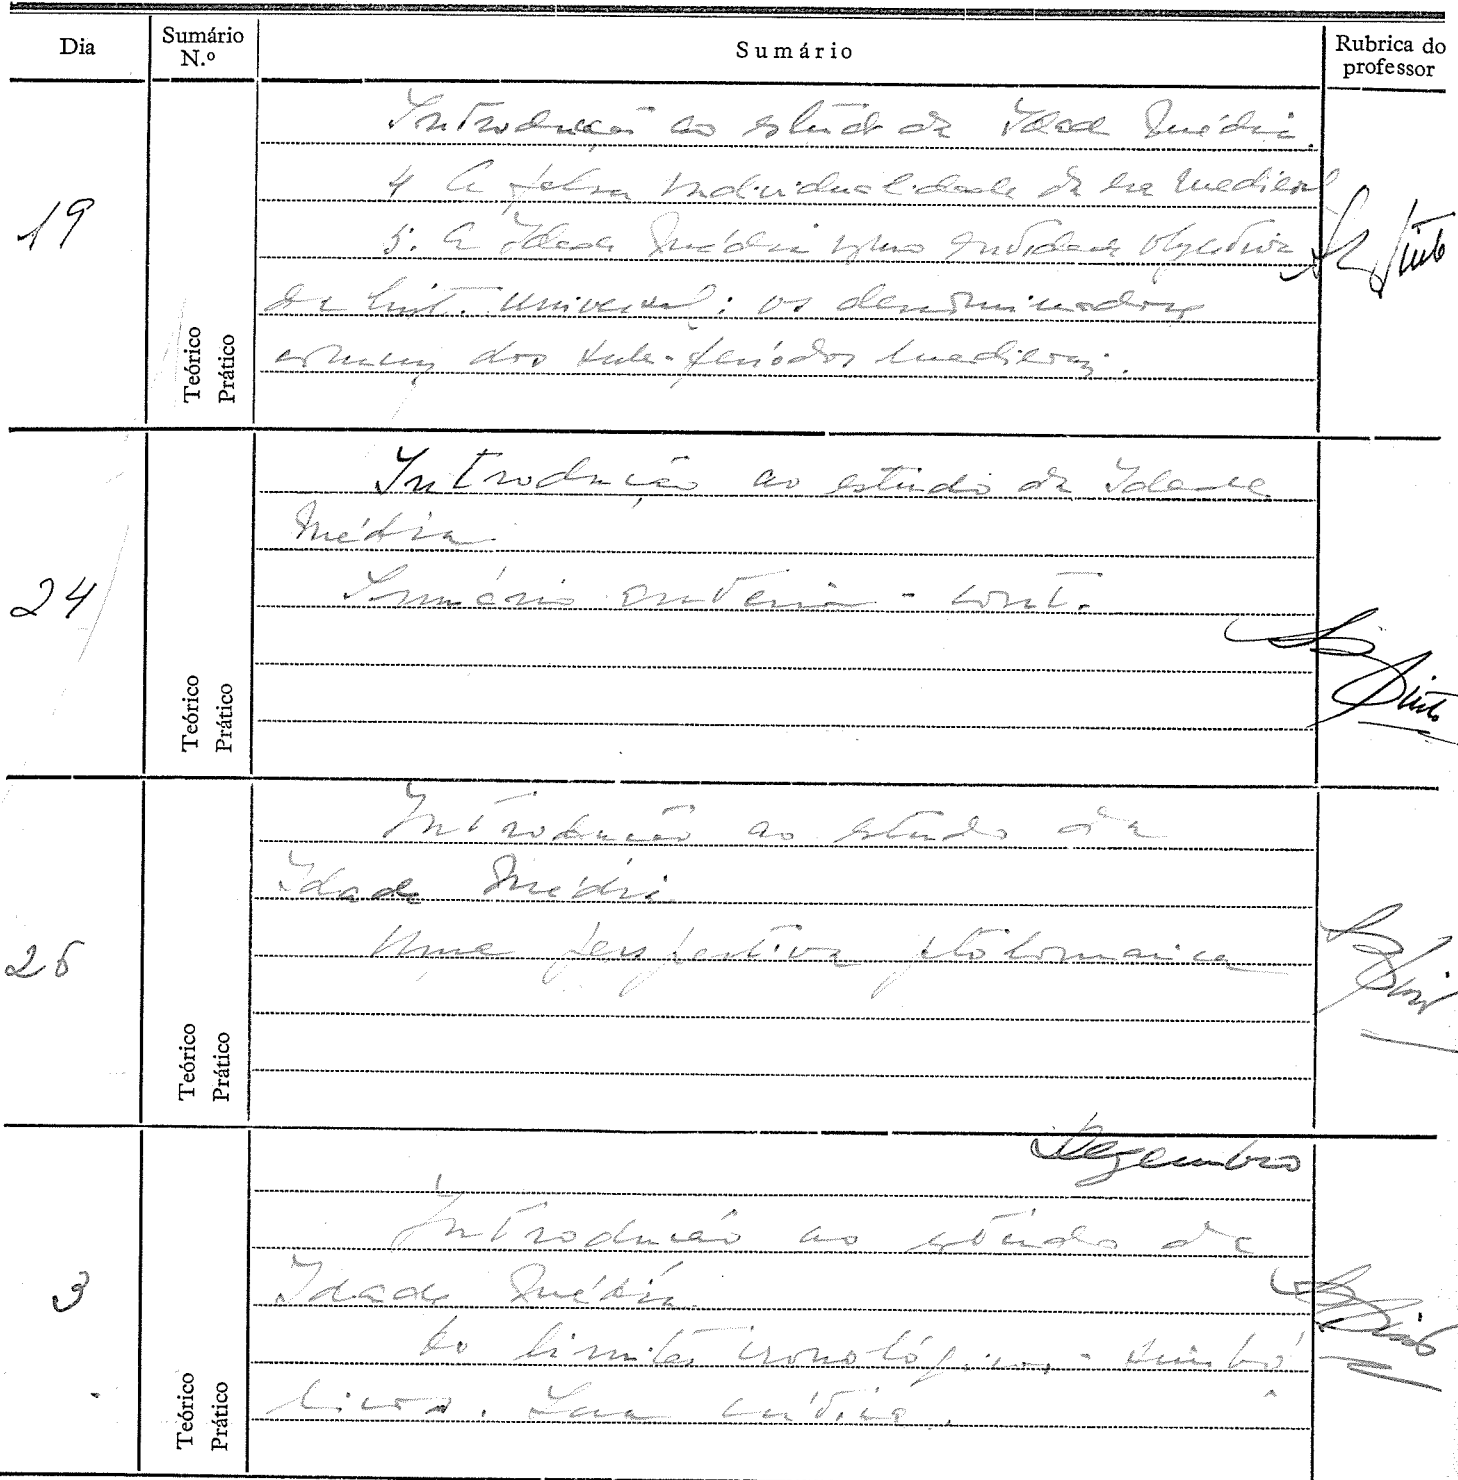 Dia
Sumário N.º
Sumário
Rubrica do professor
19
Teórico
Prático
Introdução ao estudo da Idade Média.
4 A falsa individualidade da era medieval
5. A Idade Média como entidade objectiva
da hist. universal: os denominadores
comuns dos sub-períodos medievais.
24
Teórico
Prático
Introdução ao estudo da Idade
Média
Sumário anterior - cont.
26
Teórico
Prático
Introdução ao estudo da
Idade Média
Uma perspectiva ptolomaica
Dezembro
3
Teórico
Prático
Introdução ao estudo da
Idade Média
Os limites cronológicos - simbó
licos. Sua crítica.